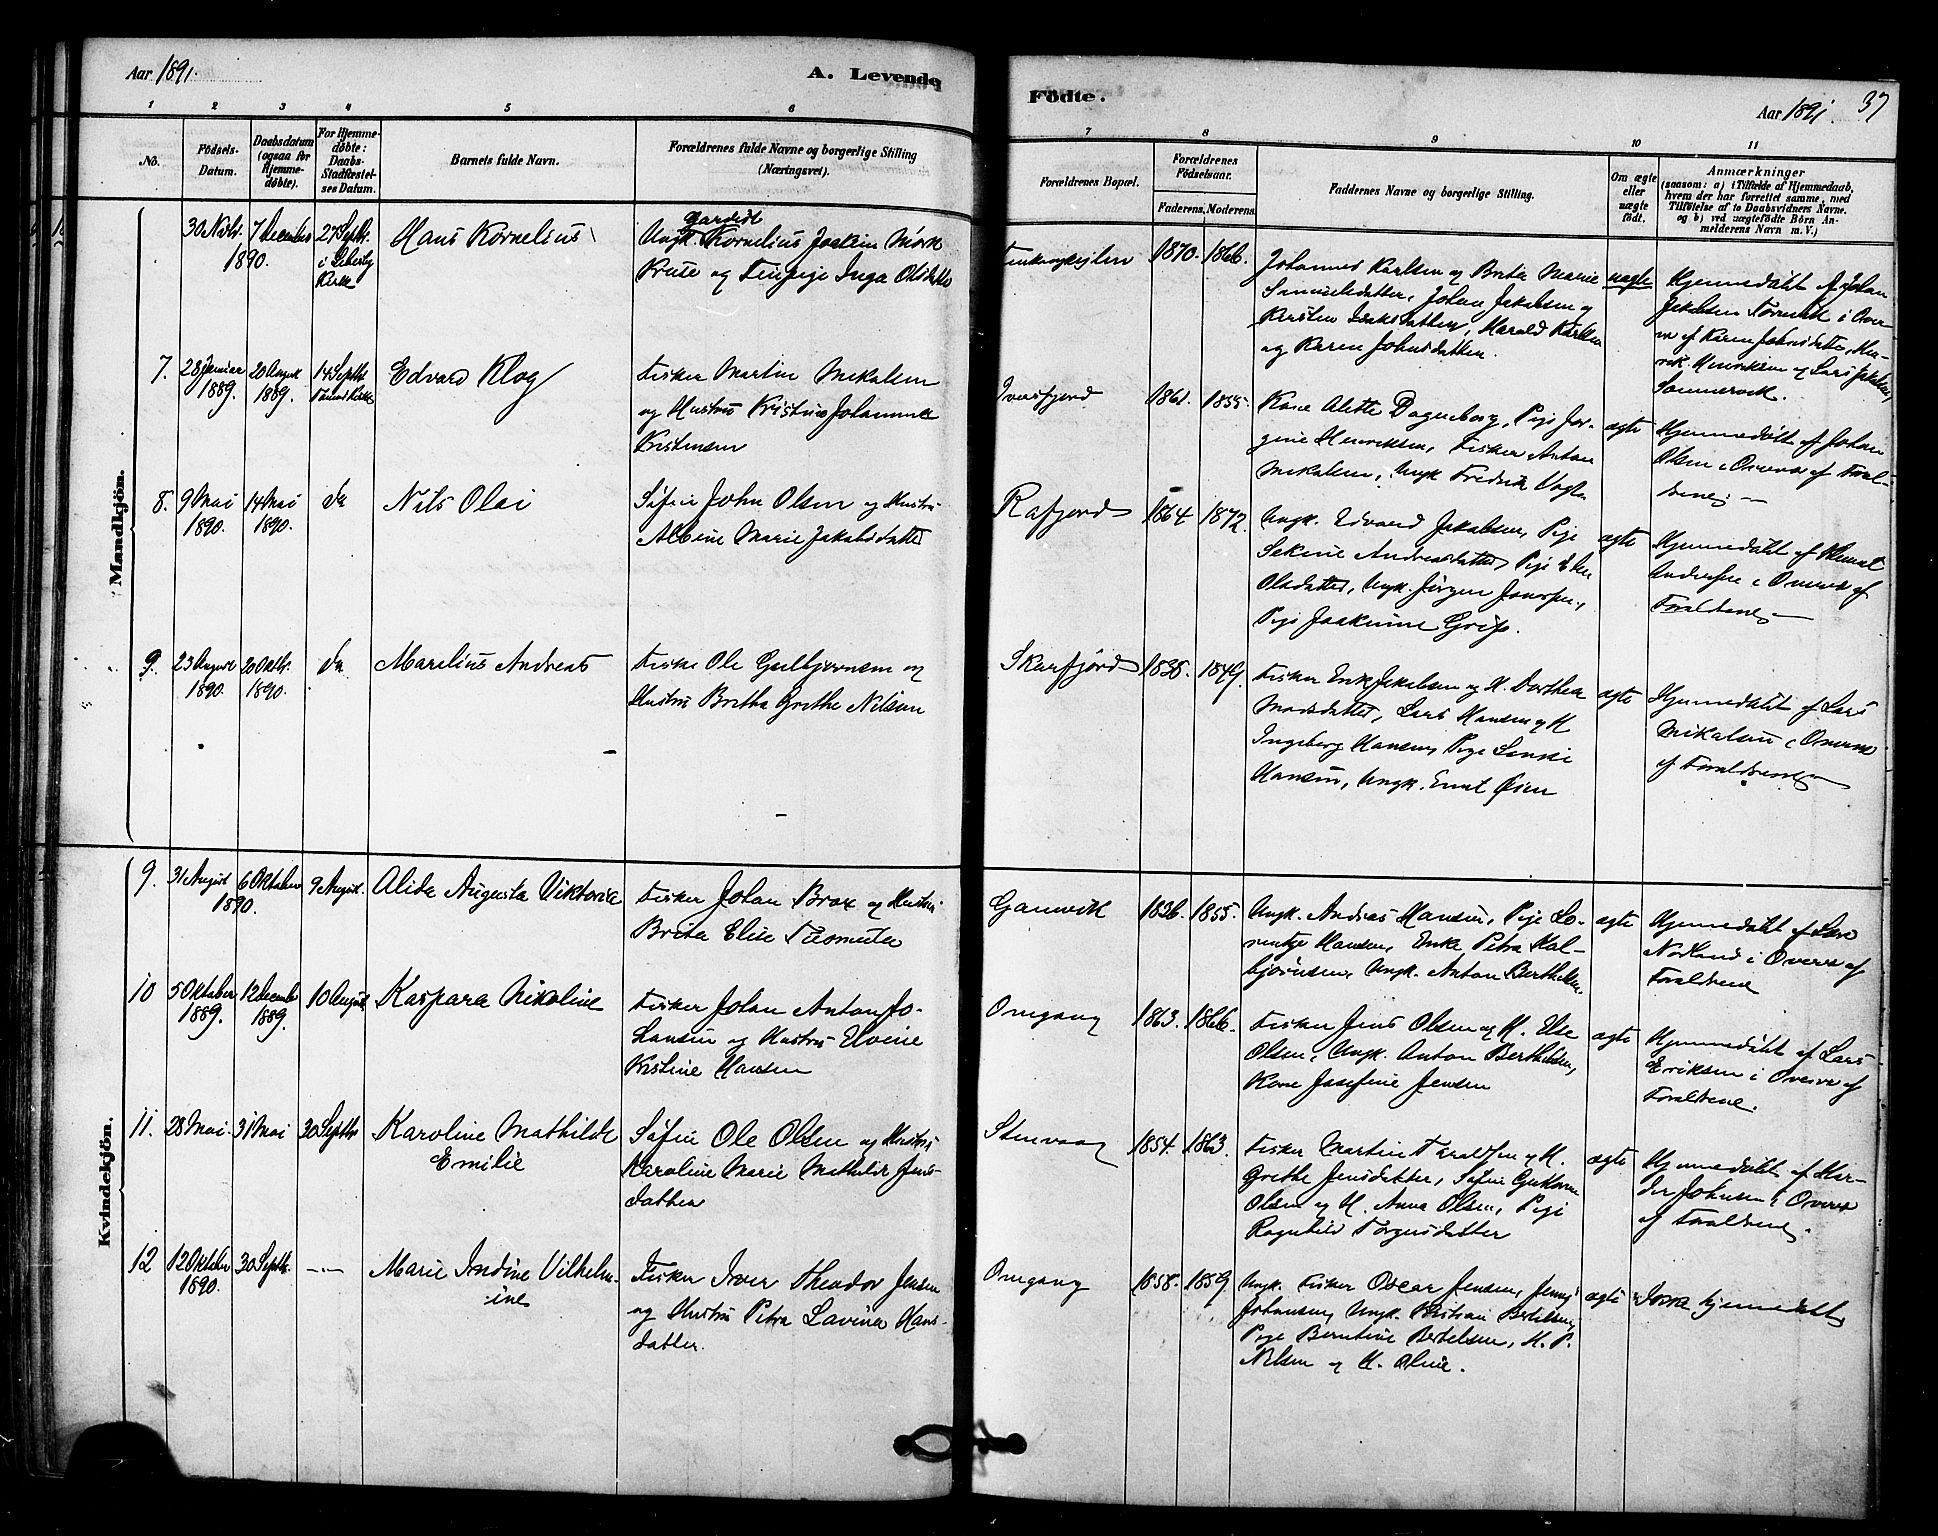 Aar 1891.
A. Levende
1 2 3 4 5 6
No.
Födsels-
Datum.
Daabsdatum
(ogsaa for
Hjemme-
döbte).
For Hjemme-
döbte:
Daabs-
Stadfæstel-
ses Datum.
Barnets fulde Navn.
Forældrenes fulde Navne og borgerlige Stilling
(Næringsvei).
Mandkjön.
30 Novbr. 7 December 27 Septbr.
1890.
i Lebesby
Kirke
Hans Kornelius
Ungk. Kornelius Joakim Mörk
Kruse og Finpige Inga Olsdatter
7. 28 Januar 20 August 14 Septbr
1889. 1889.
Edvard Klog
Fisker Martin Mikalsen
og Hustru Kristine Johanna
Kristensen
8. 9 Mai 14 Mai do
1890. 1890.
Nils Olai
Söfin John Olsen og Hustru
Albine Marie Jakobsdatter
9. 23 August 20 Oktbr. do
1890. 1890.
Marelius Andreas
Fisker Ole Gulbjørnsen og
Hustru Britha Grethe Nilsen
Kvindekjön.
9. 31 August 6 Oktober 9 August.
1890.
Alida Augusta Viktoria
Fisker Johan Brox og Hustru
Brita Elise Thomine
10 5 Oktober 12 December 10 August
1889. 1889.
Kaspara Nikoline
Fisker Johan Anton Jo-
hansen og Hustru Elvine
Kristine Hansen
11. 28 Mai 31 Mai 30 Septbr
Karoline Mathilde
Emilie
Söfin Ole Olsen og Hustru
Karoline Marie Mathilde Jens-
datter
12 12 Oktober 30 Septb. -"-
1890.
Marie Indine Vilhelm-
ine
Fisker Iver Theodor Jensen
og Hustru Petra Lavina Hans-
datter.
Födte.
Aar 1891. 37
7 8 9 10 11
Forældrenes Bopæl.
Forældrenes
Födselsaar.
Faderens. Moderens.
Faddernes Navne og borgerlige Stilling.
Om ægte
eller
uægte
födt.
Anmærkninger
(saasom: a) i Tilfælde af Hjemmedaab,
hvem der har forrettet samme, med
Tilföielse af to Daabsvidners Navne.
og b) ved uægtefödte Börn An-
melderens Navn m. V.)
1870. 1866.
Johannes Karlsen og Brita Marie
Samuelsdatter, Johan Jakobsen og
Kirsten Isaksdatter, Harald Karlsen
og Karen Johnsdatter.
uægte
Hjemmedöbt af Johan
Jakobsen i Over-
vær af Karen Johnsdatter, Hen-
rik Henriksen og Lars Jakobsen,
Ivarsfjord 1861. 1855.
Kone Alette Dagenborg, Pige Jor-
gine Henriksen, Fisker Anton
Mikalsen, Ungk Fredrik Vogt
ægte
Hjemmedöbt af Johan
Olsen i Overvær af Foræl-
drene. —
Rafjord 1864 1872
Ungk. Edvard Jakobsen, Pige
Sekine Andreasdatter, Pige Elen
Olsdatter, Ungk. Jörgen Jonssen,
Pige Joakimine Grip.
ægte
Hjemmedöbt af Klemet
Andersen i Overvær af
Forældrene —
Skarfjord 1838. 1849.
Fisker Erik Jakobsen og H. Dorthea
Madsdatter, Lars Hansen og H
Ingeborg Hansen, Pige
Hansen, Ungk. Emil Øien
ægte
Hjemmedöbt af Lars
Mikalsen i Overvær
af Forældrene
Gamvik 1836. 1855.
Ungk. Andreas Hansen, Pige Lo-
rentze Hansen, Enke Petra Kal-
bjørnsen, Ungk. Anton Berthelsen.
ægte
Hjemmedöbt af Lars
Nordland i Overvær af
Forældrene
Omgang 1863. 1866.
Fisker Jens Olsen og H. Else
Olsen, Ungk. Anton Berthelsen,
Kone Josefine Jensen
ægte
Hjemmedöbt af Lars
Eriksen i Overvær af
Forældrene.
Stenvaag 1854. 1863.
Fisker Martin Haraldsen og H.
Grethe Jensdatter, Söfin
Olsen og H. Anna Olsen, Pige
Ragnhild Torgersdatter
ægte
Hjemmedöbt af
Johnsen i Overvær
af Forældrene.
Omgang 1858. 1859
Ungk. Fisker Oscar Jensen, Jenny
Johansen, Ungk. Kristian Bertelsen,
Pige Berntine Bertelsen, H. P.
Nilsen og H. Oline.
ægte
Ikke hjemmedöbt